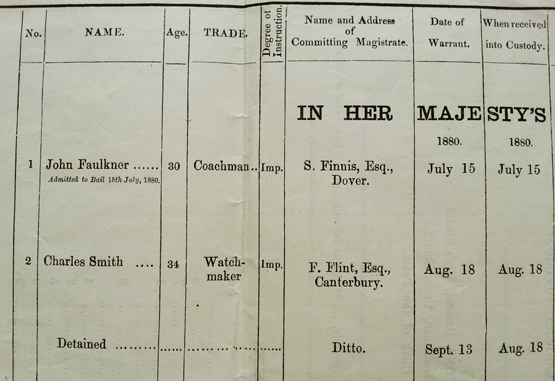 No. NAME. Age. TRADE. Degree of Instruction. Name and Address of Committing Magistrate. Date of Warrant. When received into Custody.
IN HER MAJESTY'S
1880. 1880.
1 John Faulkner ...... 30 Coachman .. Imp. S. Finnis, Esq., July 15 July 15
Admitted to Bail 15th July, 1880. Dover.
2 Charles Smith .... 34 Watch- Imp. F. Flint, Esq., Aug. 18 Aug. 18
maker Canterbury.
Detained ......... ...... ............... ...... Ditto. Sept. 13 Aug. 18